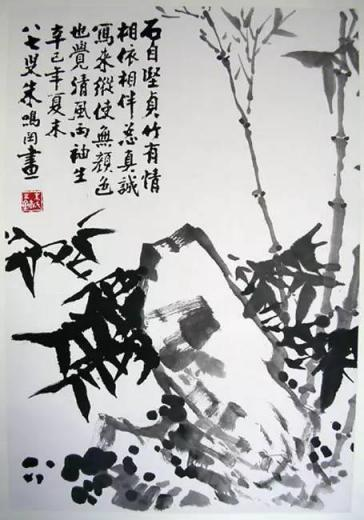 石自堅貞竹有情
相依相伴忒真誠
寫來縱使無顏色
也覺清風兩袖生
辛巳年夏末
八七叟朱鳴岡畫